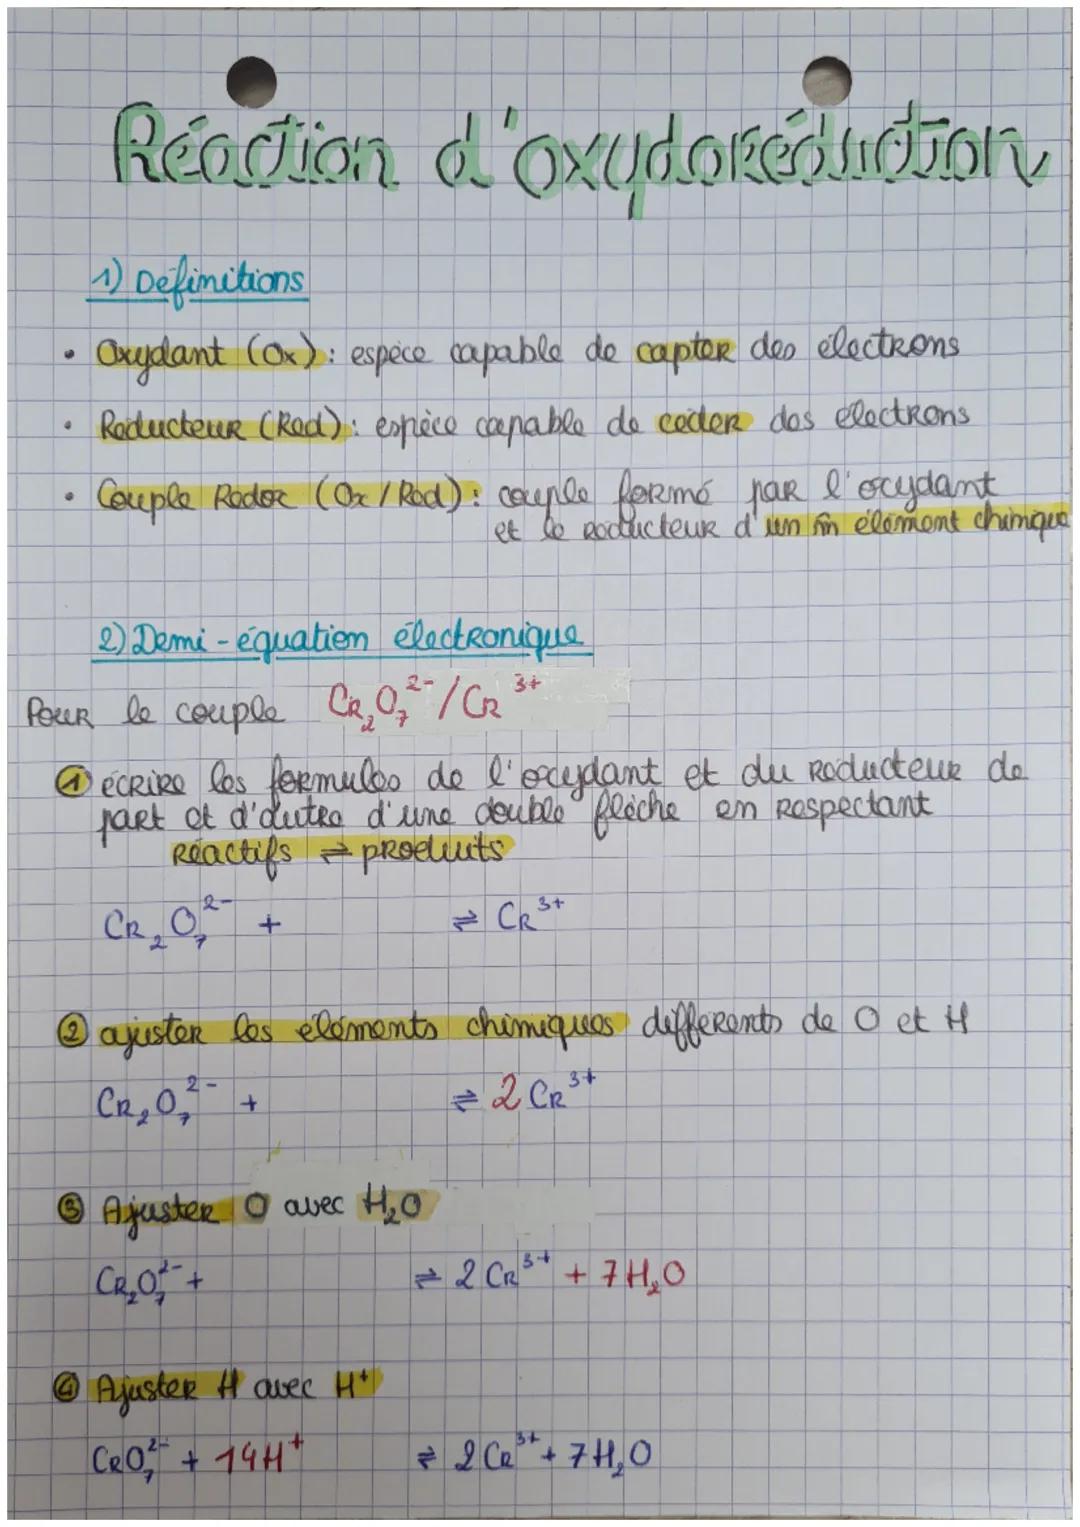 Réaction d'oxydoréduction
1) Définitions
• Oxydant (Ox) : espèce capable de capter des électrons
• Réducteur (Red) : espèce capable de céder des électrons
• Couple Redox (Ox / Red) : couple formé par l'oxydant
et le réducteur d'un m̂ élément chimique
2) Demi-équation électronique
Pour le couple Cr₂O₇²⁻/Cr³⁺
① écrire les formules de l'oxydant et du réducteur de
part et d'autre d'une double flèche en respectant
Réactifs ⇌ produits
Cr₂O₇²⁻ + ⇌ Cr³⁺
② ajuster les éléments chimiques différents de O et H
Cr₂O₇²⁻ + ⇌ 2 Cr³⁺
③ Ajuster O avec H₂O
Cr₂O₇²⁻ + ⇌ 2 Cr³⁺ + 7 H₂O
④ Ajuster H avec H⁺
CrO₇²⁻ + 14H⁺ ⇌ 2 Cr³⁺ + 7 H₂O